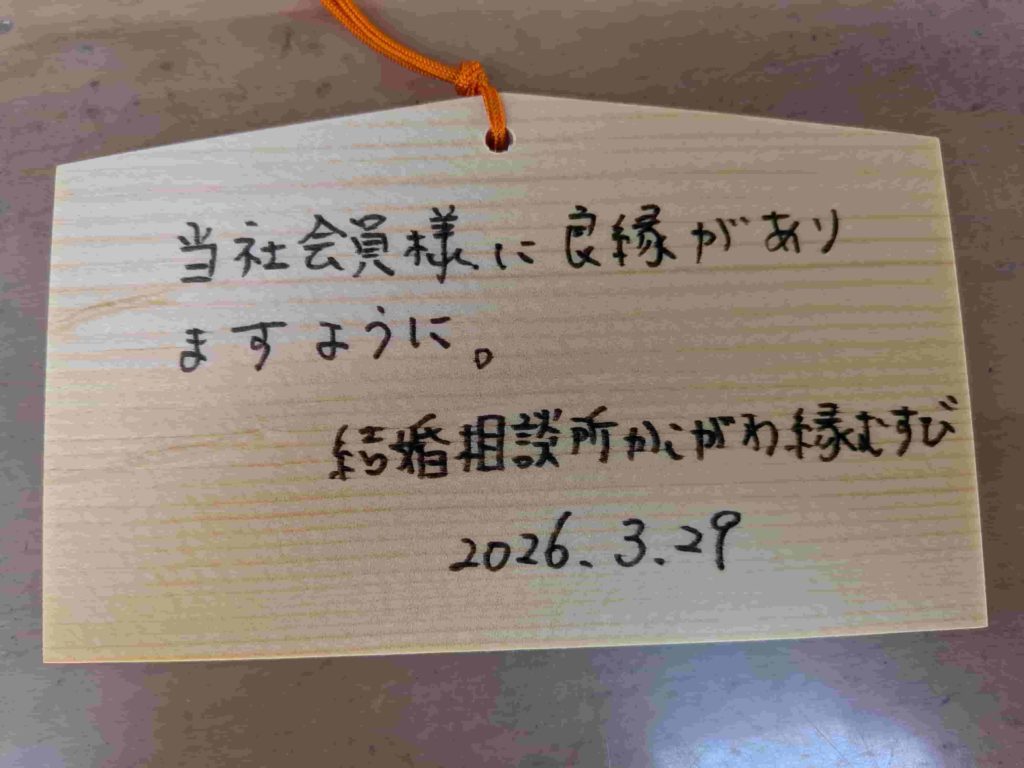 当社会員様に良縁があり
ますように。
結婚相談所かごがわ縁むすび
2026.3.29